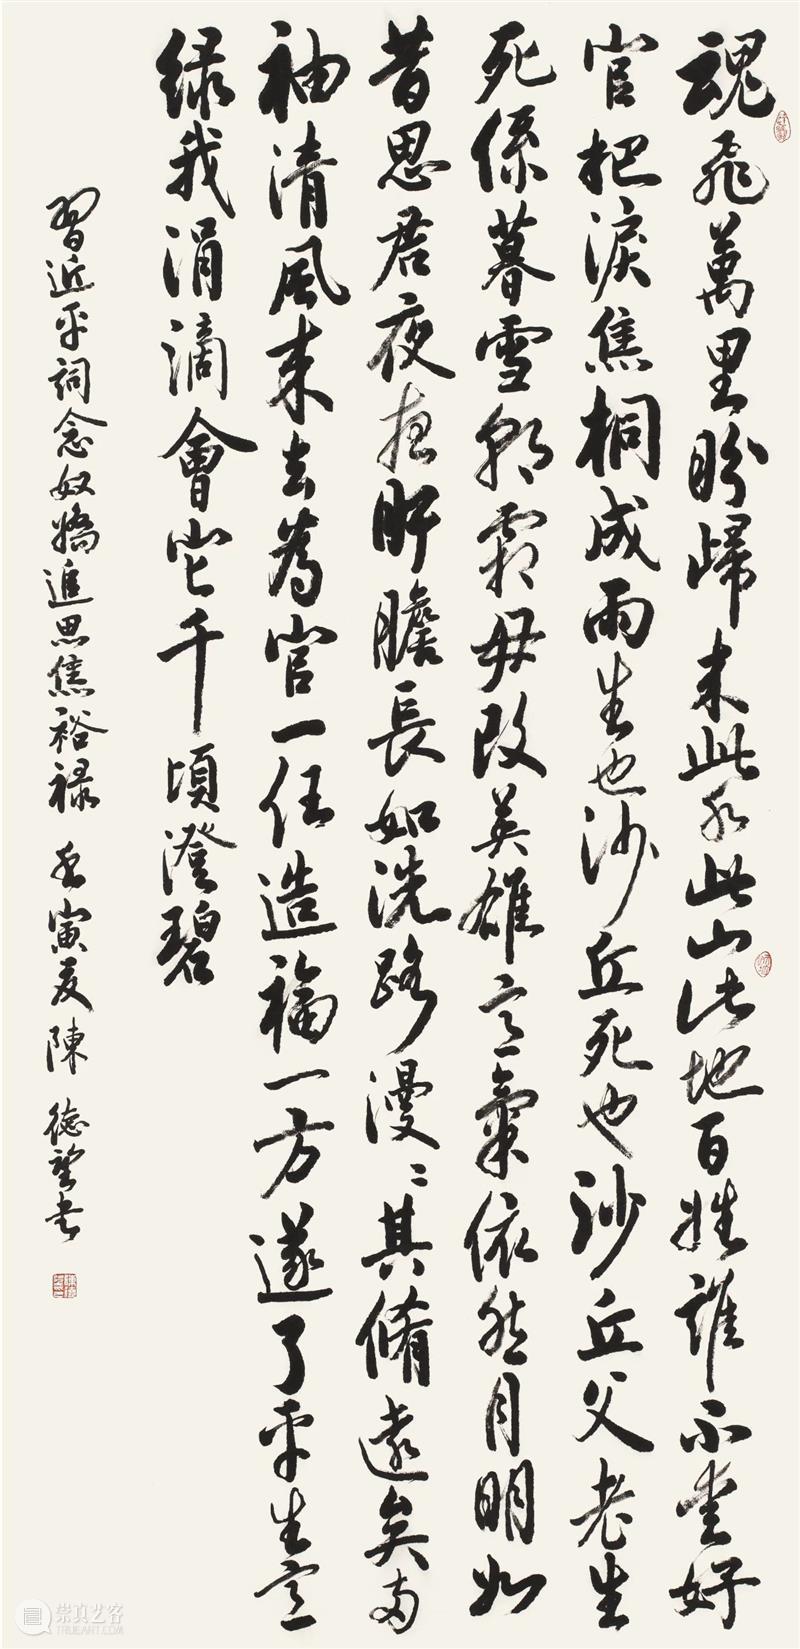 魂飛萬里盼歸來此水此山此地百姓誰不愛好
官把淚焦桐成雨生也沙丘死也沙丘父老生
死係暮雪朝霜毋改英雄意氣依然月明如
昔思君夜夜肝膽長如洗路漫〻其脩遠矣兩
袖清風來去為官一任造福一方遂了平生意
绿我涓滴會它千頃澄碧
習近平詞念奴嬌追思焦裕禄 壬寅夏陳德望書
崇真艺客